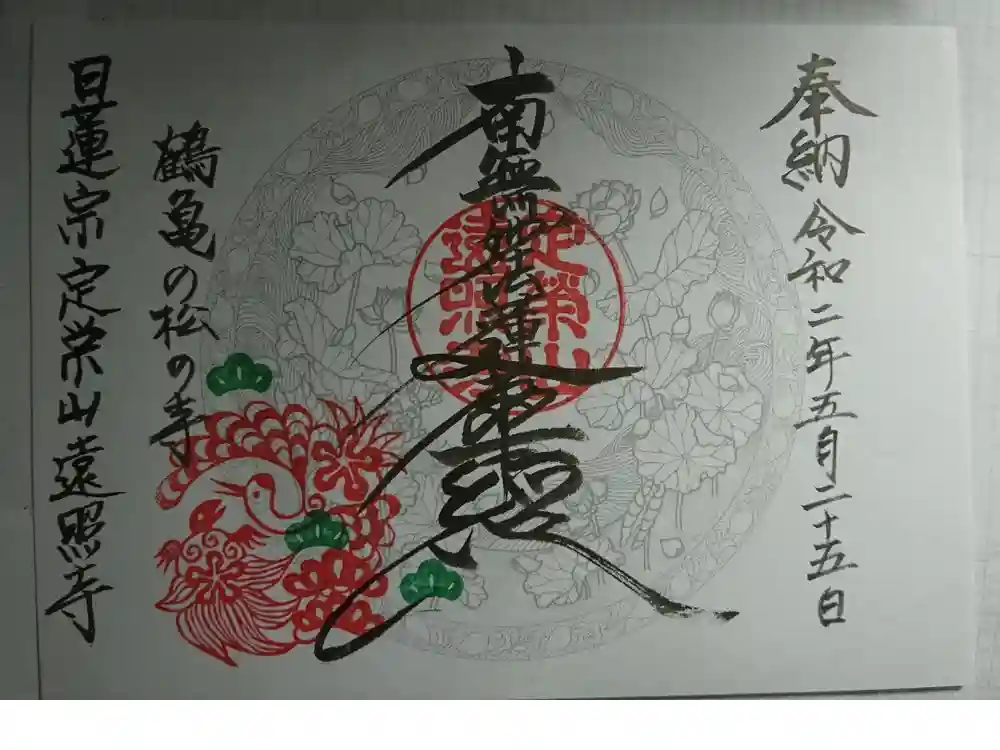 奉納 令和二年五月二十五日
南無妙法蓮華経
定榮山遠照寺
鶴亀の松の寺
日蓮宗定栄山遠照寺